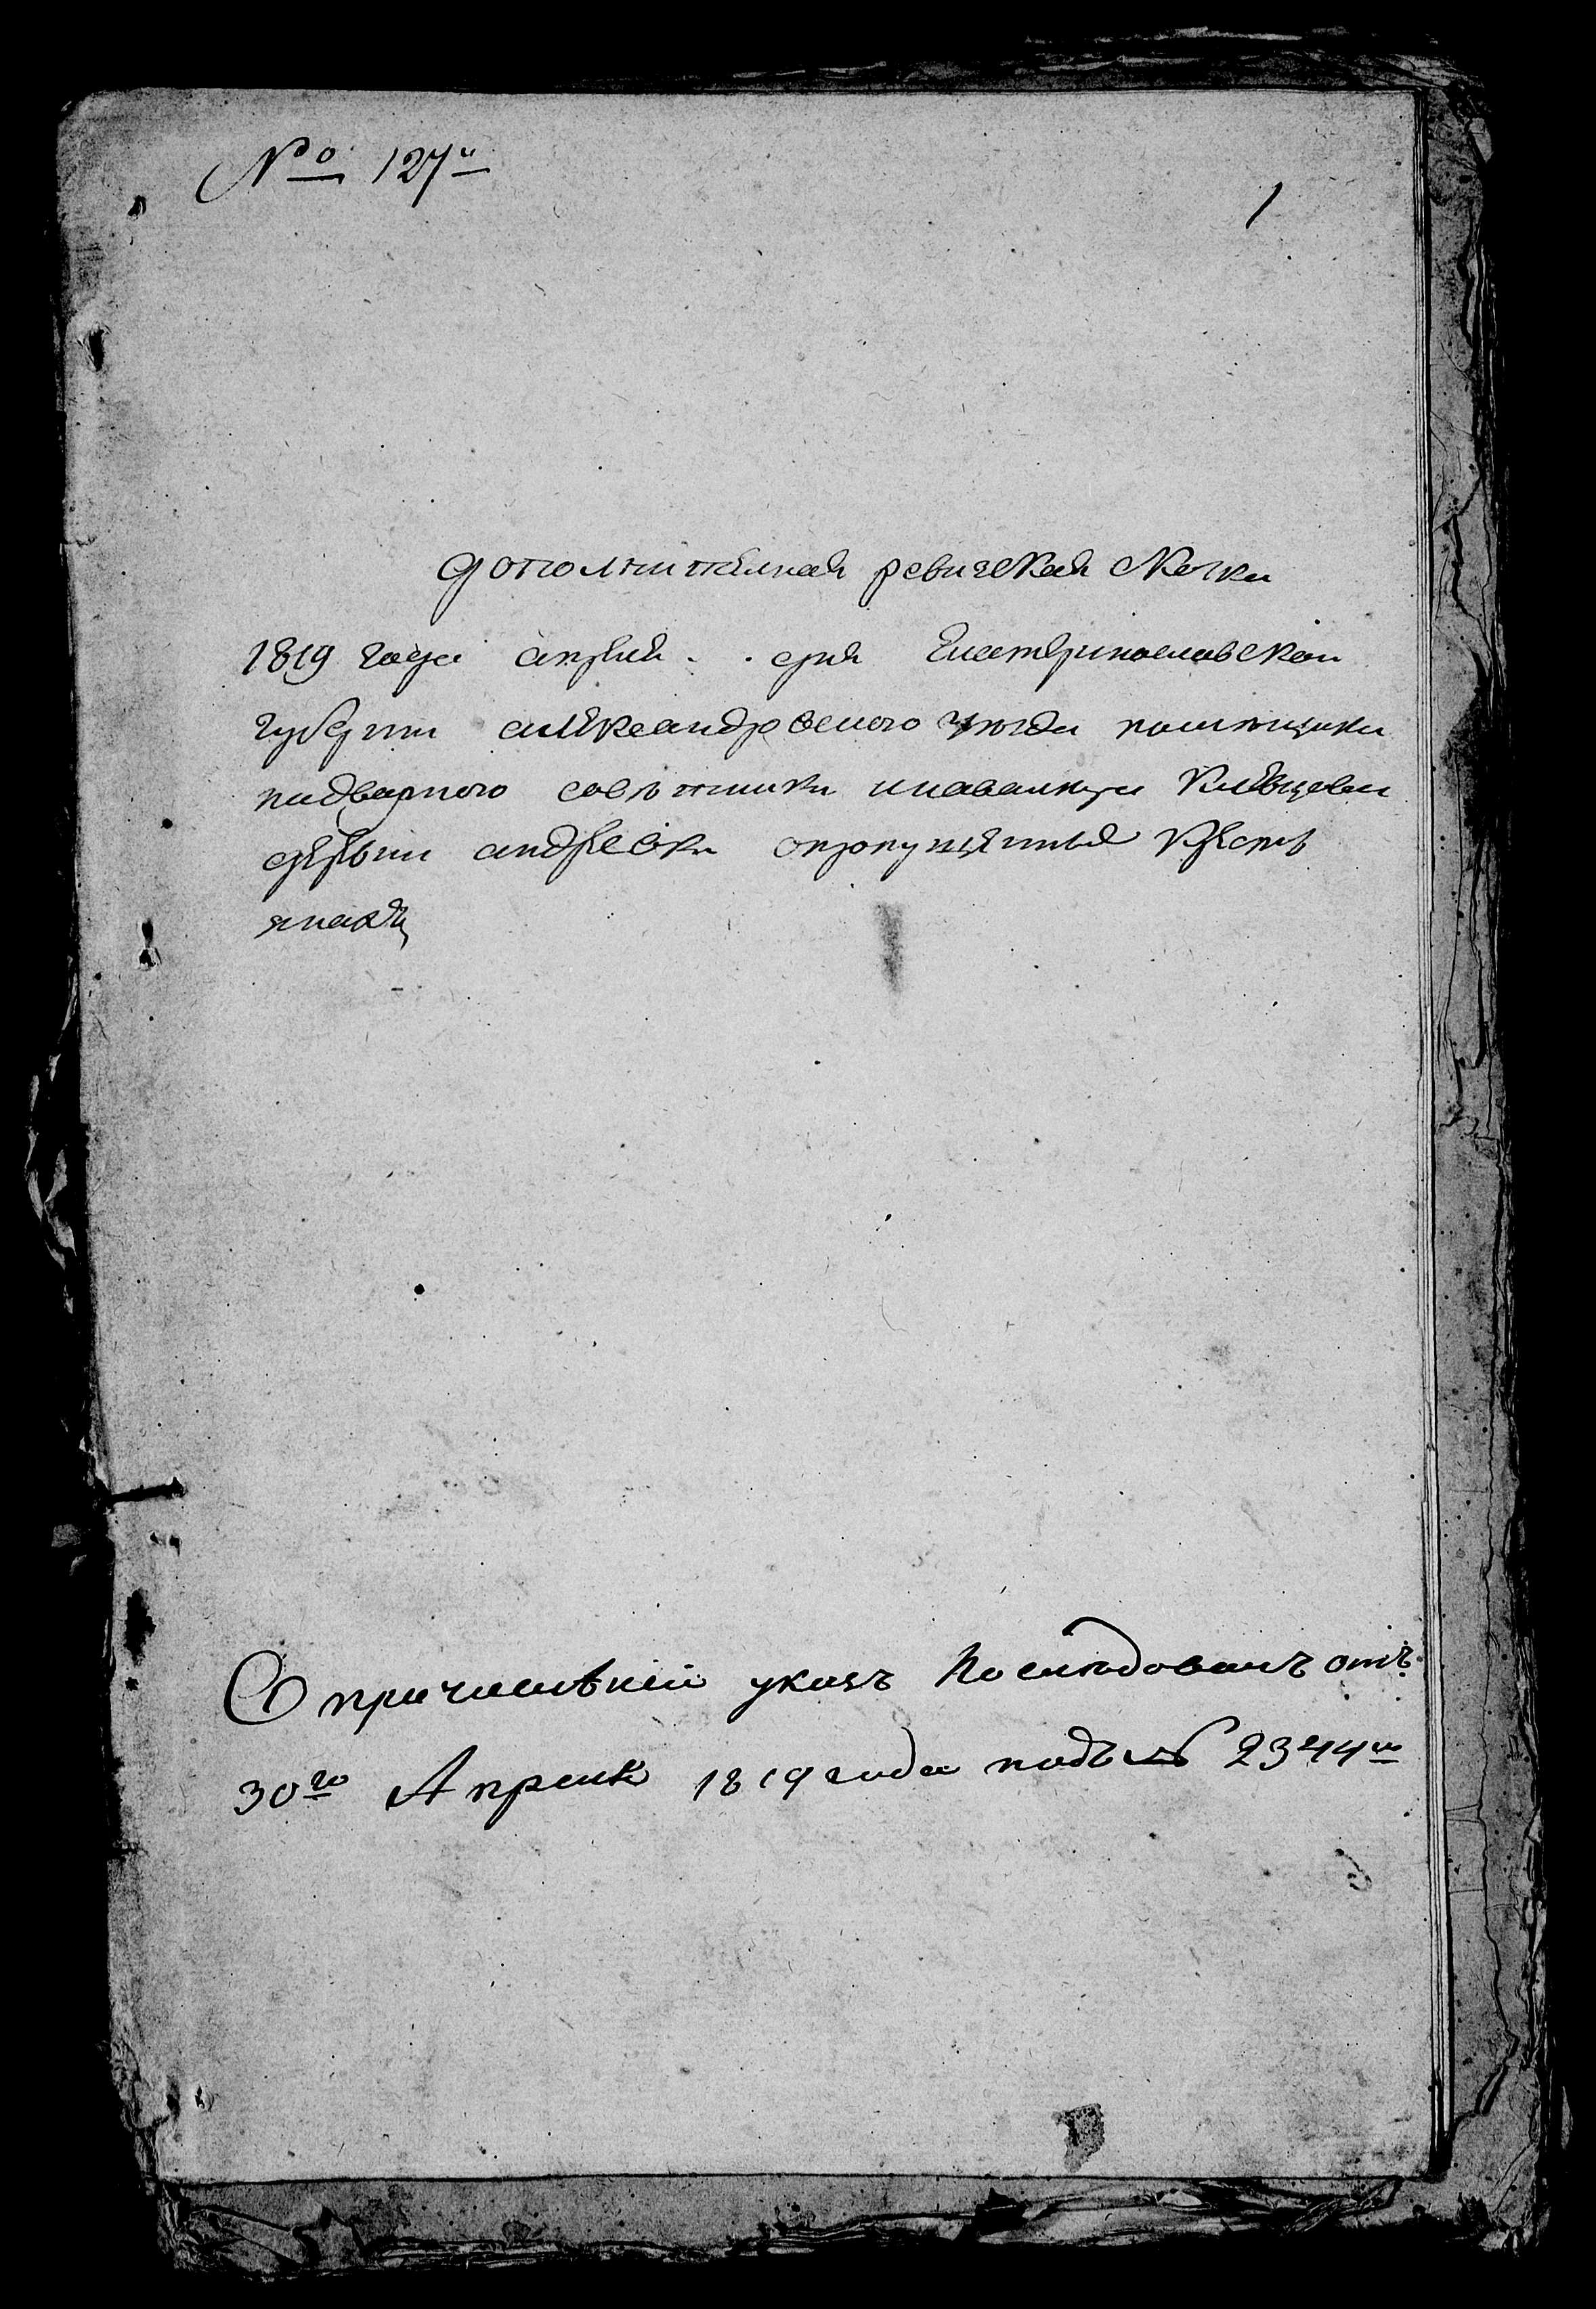 № 127й
1
дополнительная ревизская скаска
1819 года апреля . . дня Екатеринославской
губернии александровского уезда помещика
надворного советника Клевцова
деревни андреевки опропущенных крестъ
янахъ
О причислѣнии указъ Последовалъ отъ
30го Апреля 1819 года подъ № 2344м